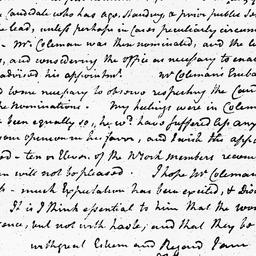 Candidate who has age. Standing, & prior public Ser
the lead, unless perhaps in cases peculiarly circum
- Mr. Coleman was then nominated, and the
and considering the office as necessary to ena
advised, his appointment. Mr Coleman's Emba
it some necessary to observe respecting the Can
the nominations. My feelings were in Colem
been equally so, he wd. have suffered less any
your openion in his favor, and I wish the appo
ten or Eleven of the N York members recom
en will not be pleased. I hope Mr Coleman
- much Expectation has been excited, & Dis
It is I think essential to him that the wor
ence, but not with haste; and that they be
with great Esteem and Regard I am